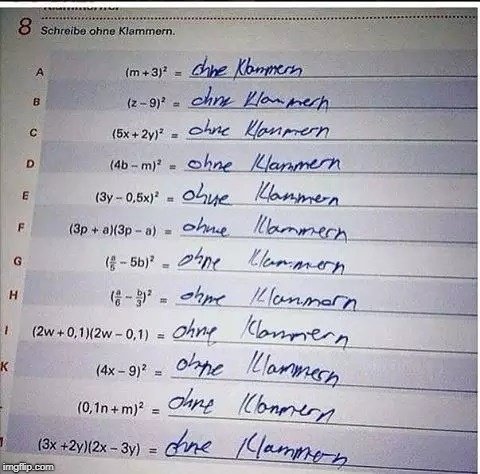 8 Schreibe ohne Klammern.
A (m + 3)² = ohne Klammern
B (z – 9)² = ohne Klammern
C (5x + 2y)² = ohne Klammern
D (4b – m)² = ohne Klammern
E (3y – 0,5x)² = ohne Klammern
F (3p + a)(3p – a) = ohne Klammern
G (a/5 – 5b)² = ohne Klammern
H (a/6 – b/3)² = ohne Klammern
I (2w + 0,1)(2w – 0,1) = ohne Klammern
K (4x – 9)² = ohne Klammern
(0,1n + m)² = ohne Klammern
(3x +2y)(2x – 3y) = ohne Klammern
imgflip.com